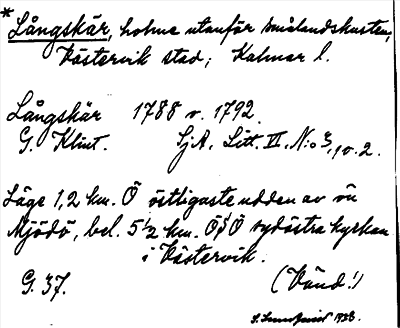 * Långskär, holme utanför smålandskusten,
Västervik stad; Kalmar l.
Långskär 1788 o. 1792.
G. Klint. SjA, Litt. II, N:o 3, 10. 2.
Läge 1,2 km. Ö östligaste udden av ön
Mjödö, bel. 5 1/2 km. ÖSÖ sydöstra kyrkan
i Västervik.
G. 37. (Vänd!)
1933.